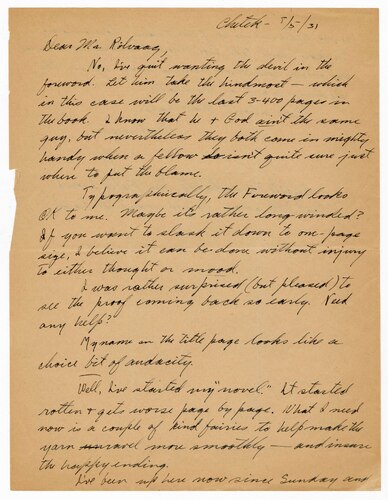 Chetek - 7/5/31
Dear Mr. Rölvaag,
No, I've quit wanting the devil in the
foreword. Let him take the hindmost — which
in this case will be the last 3-400 pages in
the book. I know that he + God ain't the same
guy, but nevertheless they both come in mighty
handy when a fellow isn't quite sure just
where to put the blame.
Typographically, the Foreword looks
OK to me. Maybe it's rather long-winded?
If you want to slash it down to one-page
size, I believe it can be done without injury
to either thought or mood.
I was rather surprised (but pleased) to
see the proof coming back so early. Need
any help?
My name on the title page looks like a
choice bit of audacity.
Well, I've started my "novel." It started
rotten + gets worse page by page. What I need
now is a couple of kind fairies to help made the
yarn unravel more smoothly — and insure
the happy ending.
I've been up here now since Sunday and